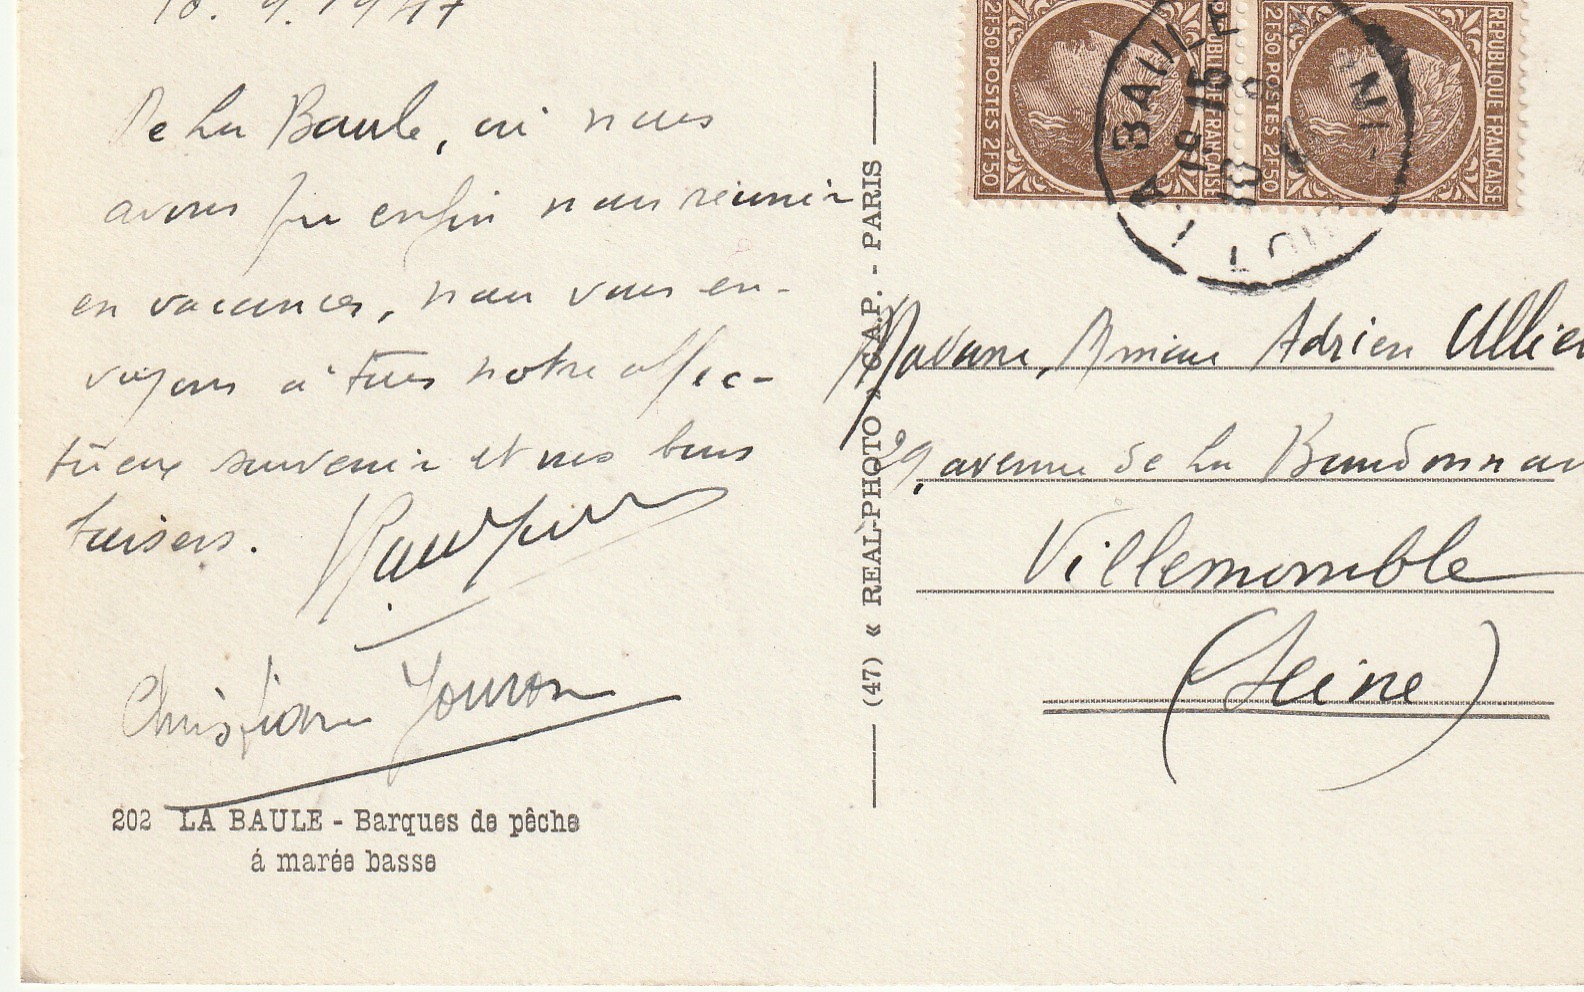 10. 9. 1947
De La Baule, où nous
avons pu enfin nous réunir
en vacances, nous vous en-
voyons à tous notre affec-
tueux souvenir et nos bons
baisers.
Christiane Jouron
202 LA BAULE - Barques de pêche
á marée basse
(47) « REAL-PHOTO » C.A.P. - PARIS
2F50 POSTES 2F50
REPUBLIQUE FRANÇAISE
2F50 POSTES 2F50
REPUBLIQUE FRANÇAISE
LA BAULE
19 15
10 9
Madame, Adrien Ullier
29, avenue de la
Villemomble
(Seine)